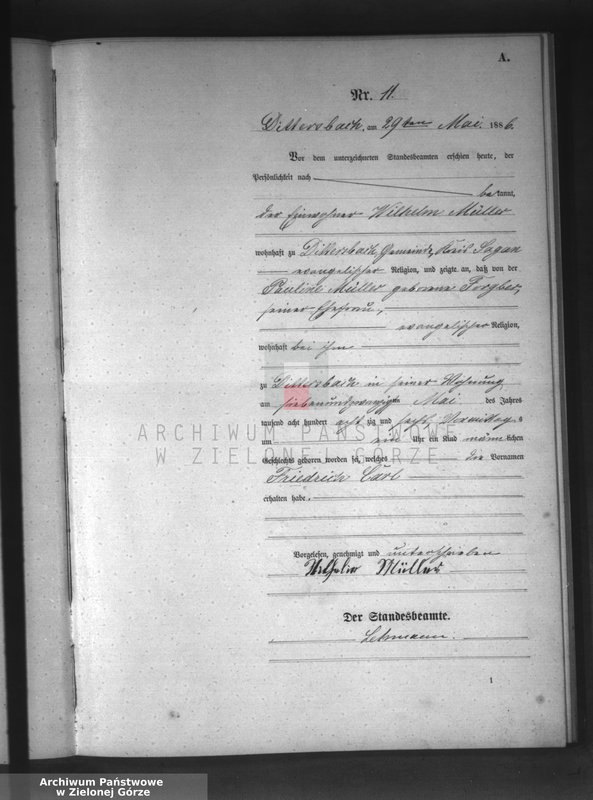 A.
Nr. 11.
Dittersbach, am 29ten Mai 1886.
Vor dem unterzeichneten Standesbeamten erschien heute, der
Persönlichkeit nach
bekannt,
der Einwohner Wilhelm Müller
wohnhaft zu Dittersbach, Gemeinde, Kreis Sagan
evangelischer Religion, und zeigte an, daß von der
Pauline Müller geborene Forgber,
seiner Ehefrau,
evangelischer Religion,
wohnhaft bei ihm
zu Dittersbach in seiner Wohnung
am siebenundzwanzigten Mai des Jahres
tausend acht hundert achtzig und sechs Vormittags
um ein Uhr ein Kind männlichen
Geschlechts geboren worden sei, welches die Vornamen
Friedrich Carl
erhalten habe.
Vorgelesen, genehmigt und unterschrieben
Wilhelm Müller
Der Standesbeamte.
Lehmann.
1
ARCHIWUM PAŃSTWOWE
W ZIELONEJ GÓRZE
Archiwum Państwowe
w Zielonej Górze